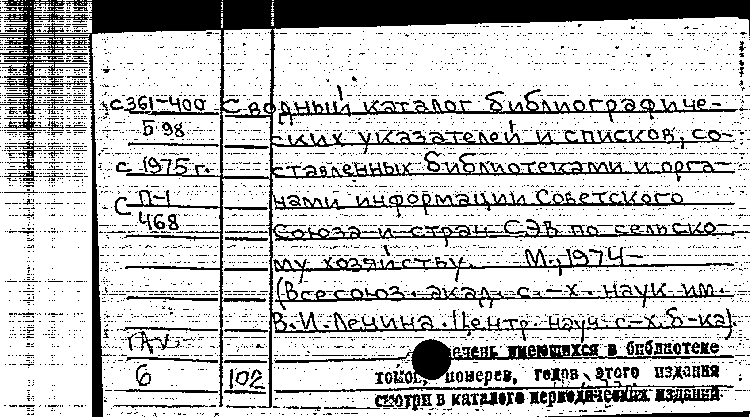 с 361-400 Сводный каталог библиографиче-
Б 98 ских указателей и списков, со-
с 1975 г. ставленных библиотеками и орга-
С П-1 нами информации Советского
468 Союза и стран СЭВ по сельско-
му хозяйству. М., 1974-
(Всесоюз. акад. с.-х. наук им.
В.И.Ленина. Центр. науч. с-х. б-ка).
имеющихся в библиотеке
6 102 томов, номеров, годов этого издания
смотри в каталоге периодических изданий